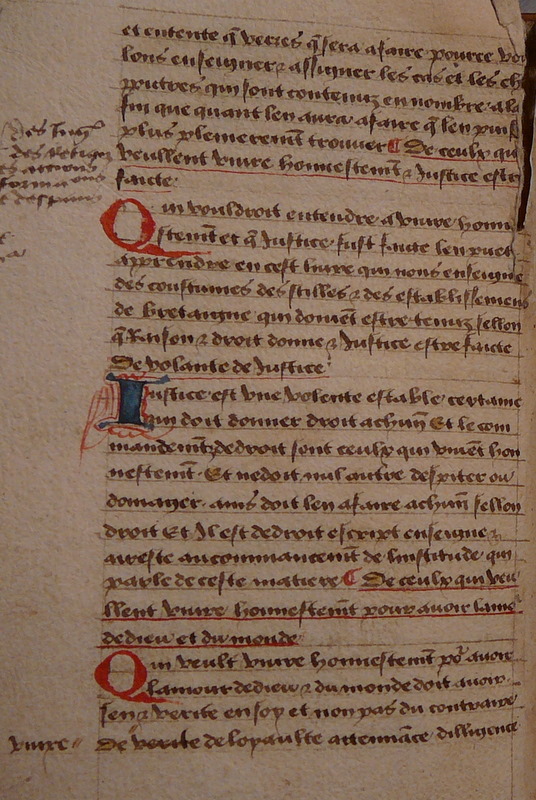 et entente q̃ verres q̃ sera a faire pource vou
lons enseigner ⁊ assigner les cas et les ch
pitres qui sont contenuz en nombre a la
fin que quant len aura a faire q̃ len puis
plus plenierem̃t trouver De ceulx qui
veullent vivre honnestem̃t ⁊ Justice estre
faicte
Qui vouldroit entendre a vivre honne
stem̃t et q̃ Justice fust faicte len puet
apprendre en cest livre qui nous enseigne
des coustumes des stilles ⁊ des establissemens
de bretaigne qui doivent estre tenuz sellon
q̃ Raison ⁊ droit donne ⁊ Justice estre faicte
De volante de Justice
Justice est une volente estable certaine
qui doit donner droit a chũn Et le com
mandem̃t de droit sont ceulx qui vivent hon
nestem̃t Et ne doit nul autre despiter ou
domager ains doit len a faire a chũn sellon
droit Et Il est de droit escript enseigne ⁊
arreste au commancem̃t de linstitude qui
parle de ceste matiere De ceulx qui veu
llent vivre honnestem̃t pour avoir lamo
de dieu et du monde
Qui veult vivre honnestem̃t po᷑ avoir
lamour de dieu ⁊ du monde doit avoir
sen ⁊ verite en soy et non pas du contraire
vivre De verite de loyaulte attemp̃ance dilligence